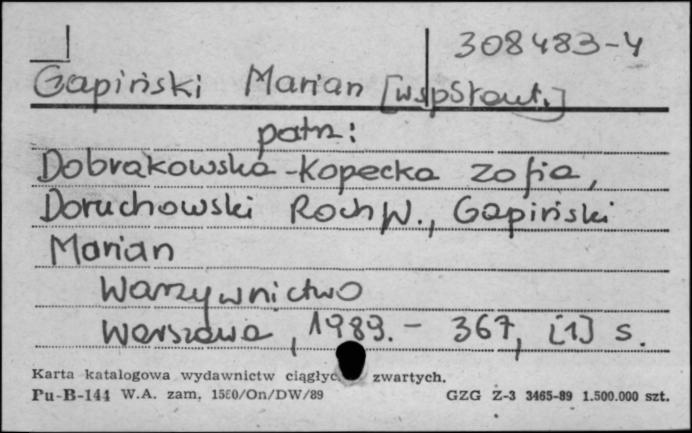 308483-4
Gapiński Marian [współaut.]
patrz:
Dobrakowska-Kopecka Zofia,
Doruchowski Roch W., Gapiński
Marian
Warzywnictwo
Warszawa, 1989. - 367, [1] s.
Karta katalogowa wydawnictw zwartych.
Pu-B-144 W.A. zam. 1550/On/DW/89 GZG Z-3 3465-89 1.500.000 szt.